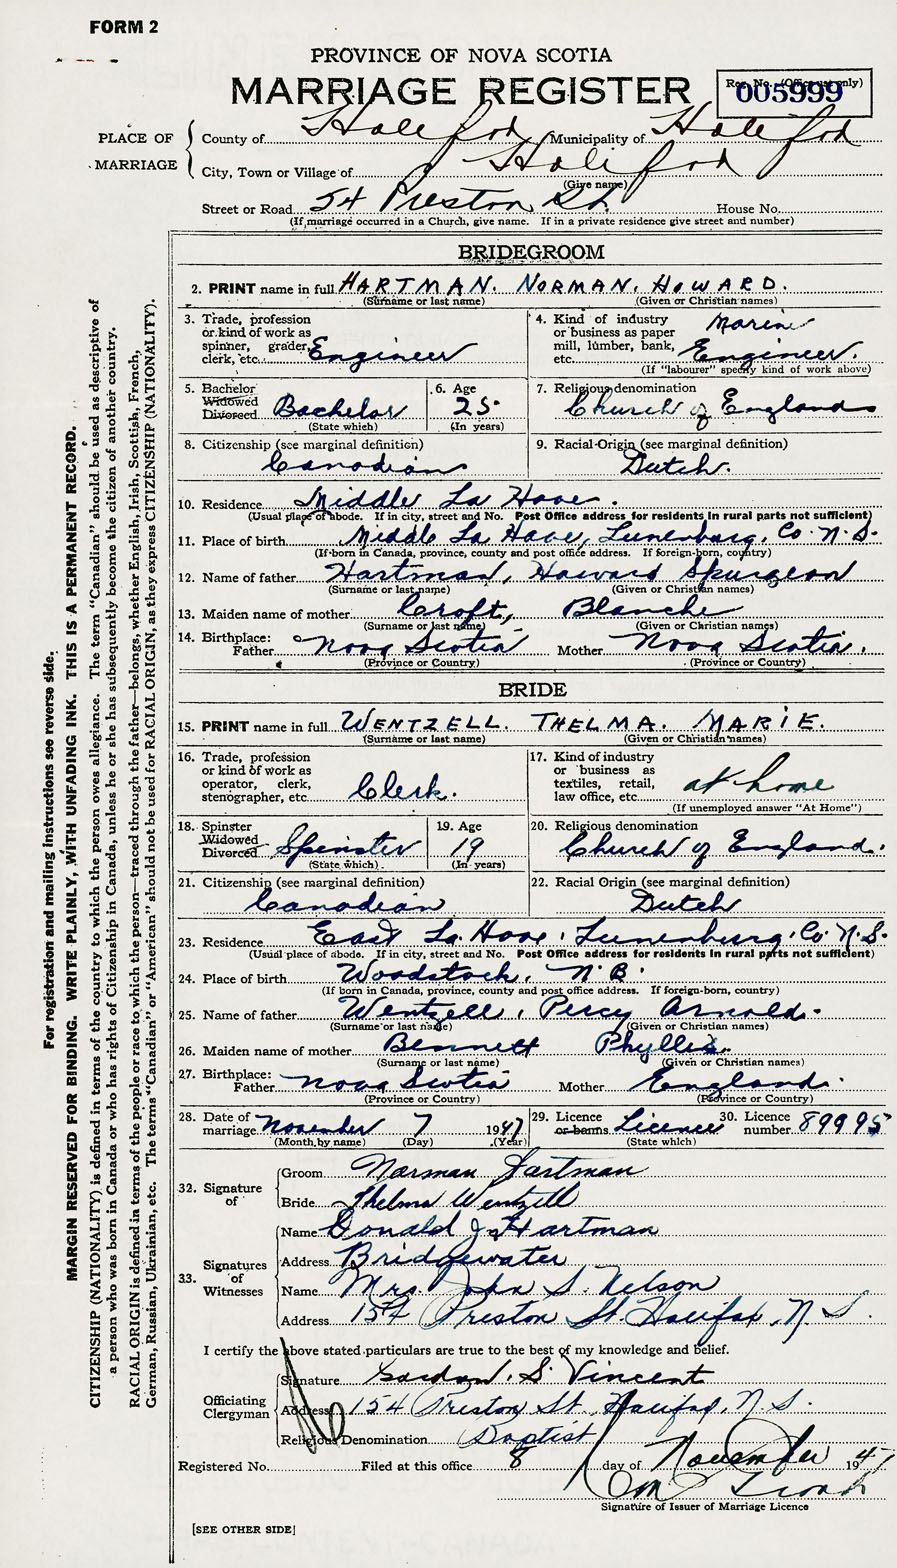 FORM 2
PROVINCE OF NOVA SCOTIA
MARRIAGE REGISTER
Reg. No. (Office use only)
005999
PLACE OF MARRIAGE
County of Halifax Municipality of Halifax
City, Town or Village of Halifax
(Give name)
Street or Road 54 Preston St. House No.
(If marriage occurred in a Church, give name. If in a private residence give street and number)
BRIDEGROOM
2. PRINT name in full HARTMAN. NORMAN. HOWARD.
(Surname or last name) (Given or Christian names)
3. Trade, profession or kind of work as spinner, grader, clerk, etc. Engineer
4. Kind of industry or business as paper mill, lumber, bank, etc. Marine Engineer.
(If "labourer" specify kind of work above)
5. Bachelor Widowed Divorced Bachelor
(State which)
6. Age 25
(In years)
7. Religious denomination Church of England
8. Citizenship (see marginal definition) Canadian
9. Racial Origin (see marginal definition) Dutch.
10. Residence Middle La Have.
(Usual place of abode. If in city, street and No. Post Office address for residents in rural parts not sufficient)
11. Place of birth Middle La Have, Lunenburg, Co. N.S.
(If born in Canada, province, county and post office address. If foreign-born, country)
12. Name of father Hartman, Howard Spurgeon
(Surname or last name) (Given or Christian names)
13. Maiden name of mother Croft, Blanche
(Surname or last name) (Given or Christian names)
14. Birthplace: Father Nova Scotia Mother Nova Scotia.
(Province or Country) (Province or Country)
BRIDE
15. PRINT name in full WENTZELL. THELMA. MARIE.
(Surname or last name) (Given or Christian names)
16. Trade, profession or kind of work as operator, clerk, stenographer, etc. Clerk.
17. Kind of industry or business as textiles, retail, law office, etc. at home
(If unemployed answer "At Home")
18. Spinster Widowed Divorced Spinster
(State which)
19. Age 19
(In years)
20. Religious denomination Church of England.
21. Citizenship (see marginal definition) Canadian
22. Racial Origin (see marginal definition) Dutch
23. Residence East La Have, Lunenburg, Co. N.S.
(Usual place of abode. If in city, street and No. Post Office address for residents in rural parts not sufficient)
24. Place of birth Woodstock, N.B.
(If born in Canada, province, county and post office address. If foreign-born, country)
25. Name of father Wentzell, Percy Arnold.
(Surname or last name) (Given or Christian names)
26. Maiden name of mother Bennett Phyllis.
(Surname or last name) (Given or Christian names)
27. Birthplace: Father Nova Scotia Mother England.
(Province or Country) (Province or Country)
28. Date of marriage November 7 1947
(Month by name) (Day) (Year)
29. Licence or banns Licence
(State which)
30. Licence number 89995
32. Signature of
Groom Norman Hartman
Bride Thelma Wentzell
33. Signatures of Witnesses
Name Donald J. Hartman
Address Bridgewater
Name Mrs John S. Nelson
Address 154 Preston St. Halifax, N.S.
I certify the above stated particulars are true to the best of my knowledge and belief.
Officiating Clergyman
Signature Gordon. S. Vincent
Address 154 Preston St. Halifax, N.S.
Religious Denomination Baptist
Registered No. Filed at this office 8 day of November 1947
Signature of Issuer of Marriage Licence
[SEE OTHER SIDE]
For registration and mailing instructions see reverse side.
MARGIN RESERVED FOR BINDING. WRITE PLAINLY, WITH UNFADING INK. THIS IS A PERMANENT RECORD.
CITIZENSHIP (NATIONALITY) is defined in terms of the country to which the person owes allegiance. The term "Canadian" should be used as descriptive of
a person who was born in Canada or who has rights of Citizenship in Canada, unless he or she has subsequently become the citizen of another country.
RACIAL ORIGIN is defined in terms of the people or race to which the person—traced through the father—belongs, whether English, Irish, Scottish, French,
German, Russian, Ukrainian, etc. The terms "Canadian" or "American" should not be used for RACIAL ORIGIN, as they express CITIZENSHIP (NATIONALITY).